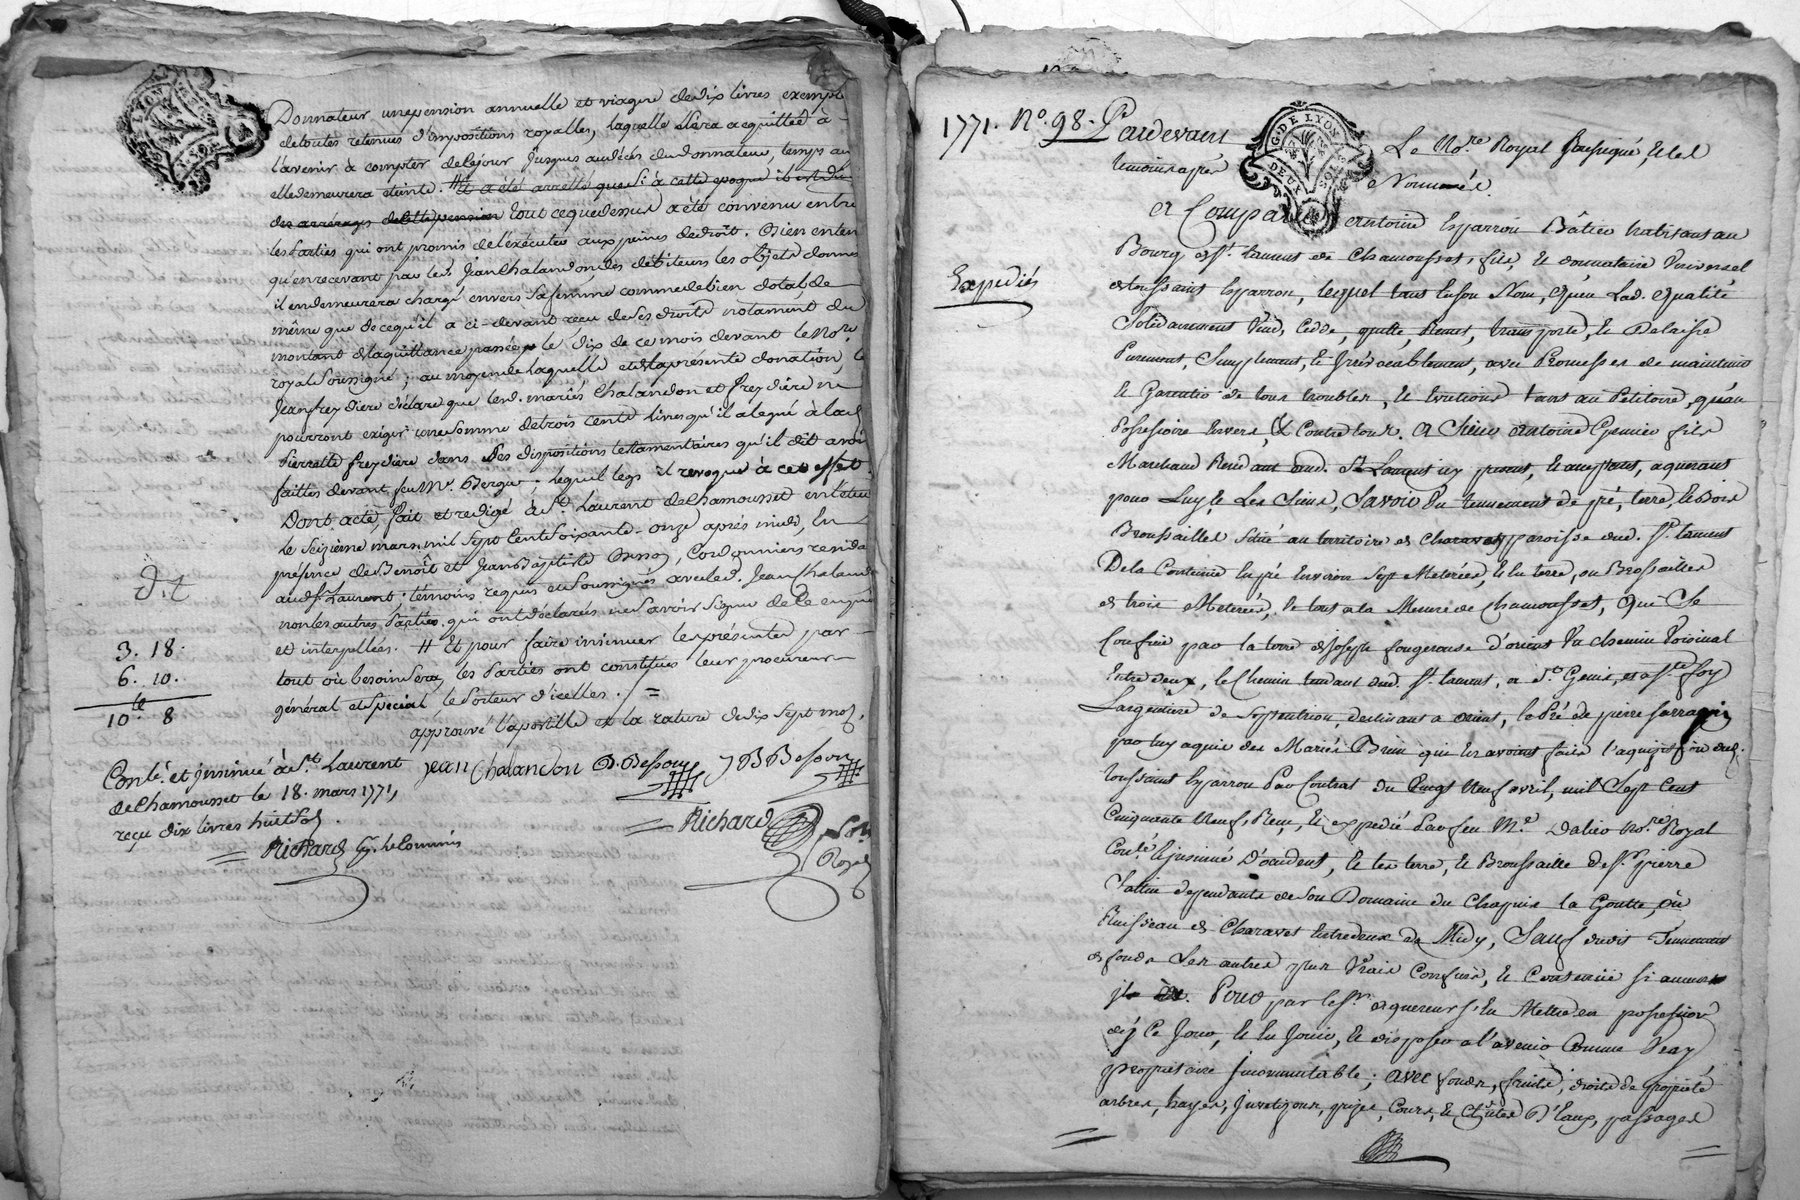 Donnateur une pension annuelle et viagere de dix livres exempte
de toutes retenues d'impositions royalles, laquelle sera acquittée à
l'avenir à compter de ce jour jusques au décés du donnateur, temps au
elle demeurera éteinte. # il a été arretté que si à cette epoque il est dû
des arrérages de cette pension tout ce que dessus a été convenu entre
les Parties qui ont promis de l'exécuter aux peines de droit. Bien enten
qu'en recevant par led. Jean Chalandon des débiteurs les objets donnés
il en demeurera chargé envers sa femme comme de bien dotal, de
même que de ce qu'il a ci-devant reçu de ses droits notament du
montant de la quittance passée le dix de ce mois devant le No.re
royal soussigné; au moyen de laquelle et de la présente donation, le
Jean freydiere déclare que lesd. mariés Chalandon et freydière ne
pourront exiger une somme de trois cents livres qu'il a legué à lad.
Pierrette freydière dans ses dispositions testamentaires qu'il dit avoir
faittes devant feu Me. Berger, lequel legs il revoque à cet effet.
Dont acte, fait et redigé à St. Laurent de Chamousset en l'étude
le seizième mars mil sept cent soixante-onze après midy, En
présence de Benoît et Jean Baptiste Besson, Cordonniers résida
aud. St. Laurent témoins requis et soussignés avec led. Jean Chaland
non les autres Parties qui ont déclaré ne savoir signer de ce enquis
et interpellées. # Et pour faire insinuer les présentes par-
tout où besoin sera, les Parties ont constitués leur procureur
général et spécial le Porteur d'icelles. / =
approuvé l'apostille et la rature de dix sept mots.
d. t
3. 18.
6. 10.
10. 8
Conté. et insinué à St. Laurent
de Chamousset le 18. mars 1771,
reçu dix livres huit sols.
Richard
jean Chalandon B. Besson JB Besson
Richard
No.re
Royal
G. DE LYON
DEUX SOLS
1771. No. 98. Pardevant Le No.re Royal soussigné et les
temoins après Nommés.
A Comparu antoine Esparron Bâtier habitant au
Bourg de St. laurent de Chamousset, fils, et donnataire Universel
de toussaint Esparron, lequel tant en son Nom, qu'en Lad. qualité
Expediés
Solidairement Vend, Cedde, quitte, Remet, transporte, et Delaisse
Purement, Simplement, et Irrévocablement, avec Promesses de maintenir
et Garentir de tous troubles, et Evictions tant au Petitoire, qu'au
Possessoire Envers, et Contre tous. A Sieur antoine Grenier fils
Marchand Resident aud. St. Laurent icy present, et acceptant, aquerant
pour Luy, et Les Siens, Savoir Un tennement de pré, terre, et Bois
Broussailles Situé au territoire de Charavet paroisse dud. St. laurent
De la Contenue en pré Environ Sept Meterées, et en terre, ou Brossailles
de trois Meterées, le tout a la Mesure de Chamousset, Qui Se
Confine par la terre de Joseph fougerouse d'orient Un chemin Voisinal
Entre deux, le Chemin tendant dud. St. laurent, a St. Genis, et a Ste. foy
Largentiere de Septentrion, declinant a orient, le Pré de pierre farragin
par luy aquis des Mariés Brun qui en avoient faits l'aquisition dud.
toussaint Esparron Par Contrat du Vingt Neuf avril, mil Sept Cent
Cinquante Neuf, Reçu, et expedié Par feu Me. Dalier No.re Royal
Conté. et insinué D'occident, et les terre, et Broussaille de Sr. pierre
dependants de Son Domaine du Chapuis la Goutte, ou
Ruisseau de Charavet Entredeux de Midy, Sauf dudit Tennement
de fonds Les autres plus Vrais Confins, et Contenue si aucuns
Pour par le Sr. aquereur s'En Mettre en possession
dèz Ce Jour, et En Jouir, et disposer a l'avenir Comme Vray
proprietaire Incommutable; avec fonds, fruits, droits de propriété
arbres, hayes, prizes, Cours, et Chutes d'Eaux, passages